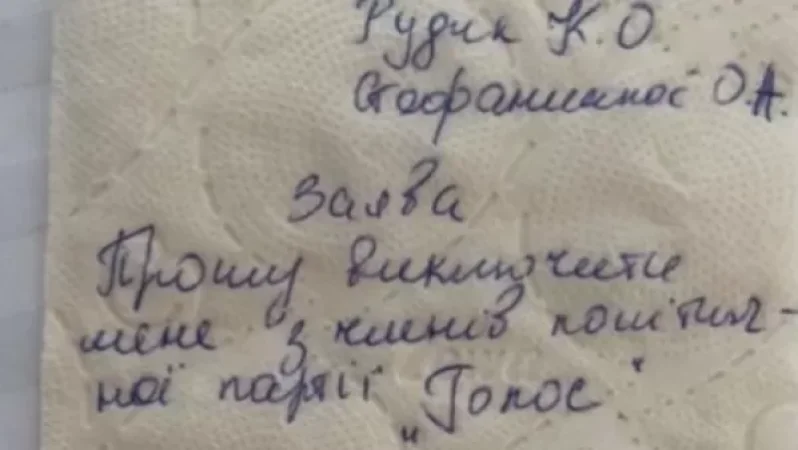 Рудик К.О.
Стефанишиної О.А.
Заява
Прошу виключити
мене з членів політич-
ної партії „Голос"